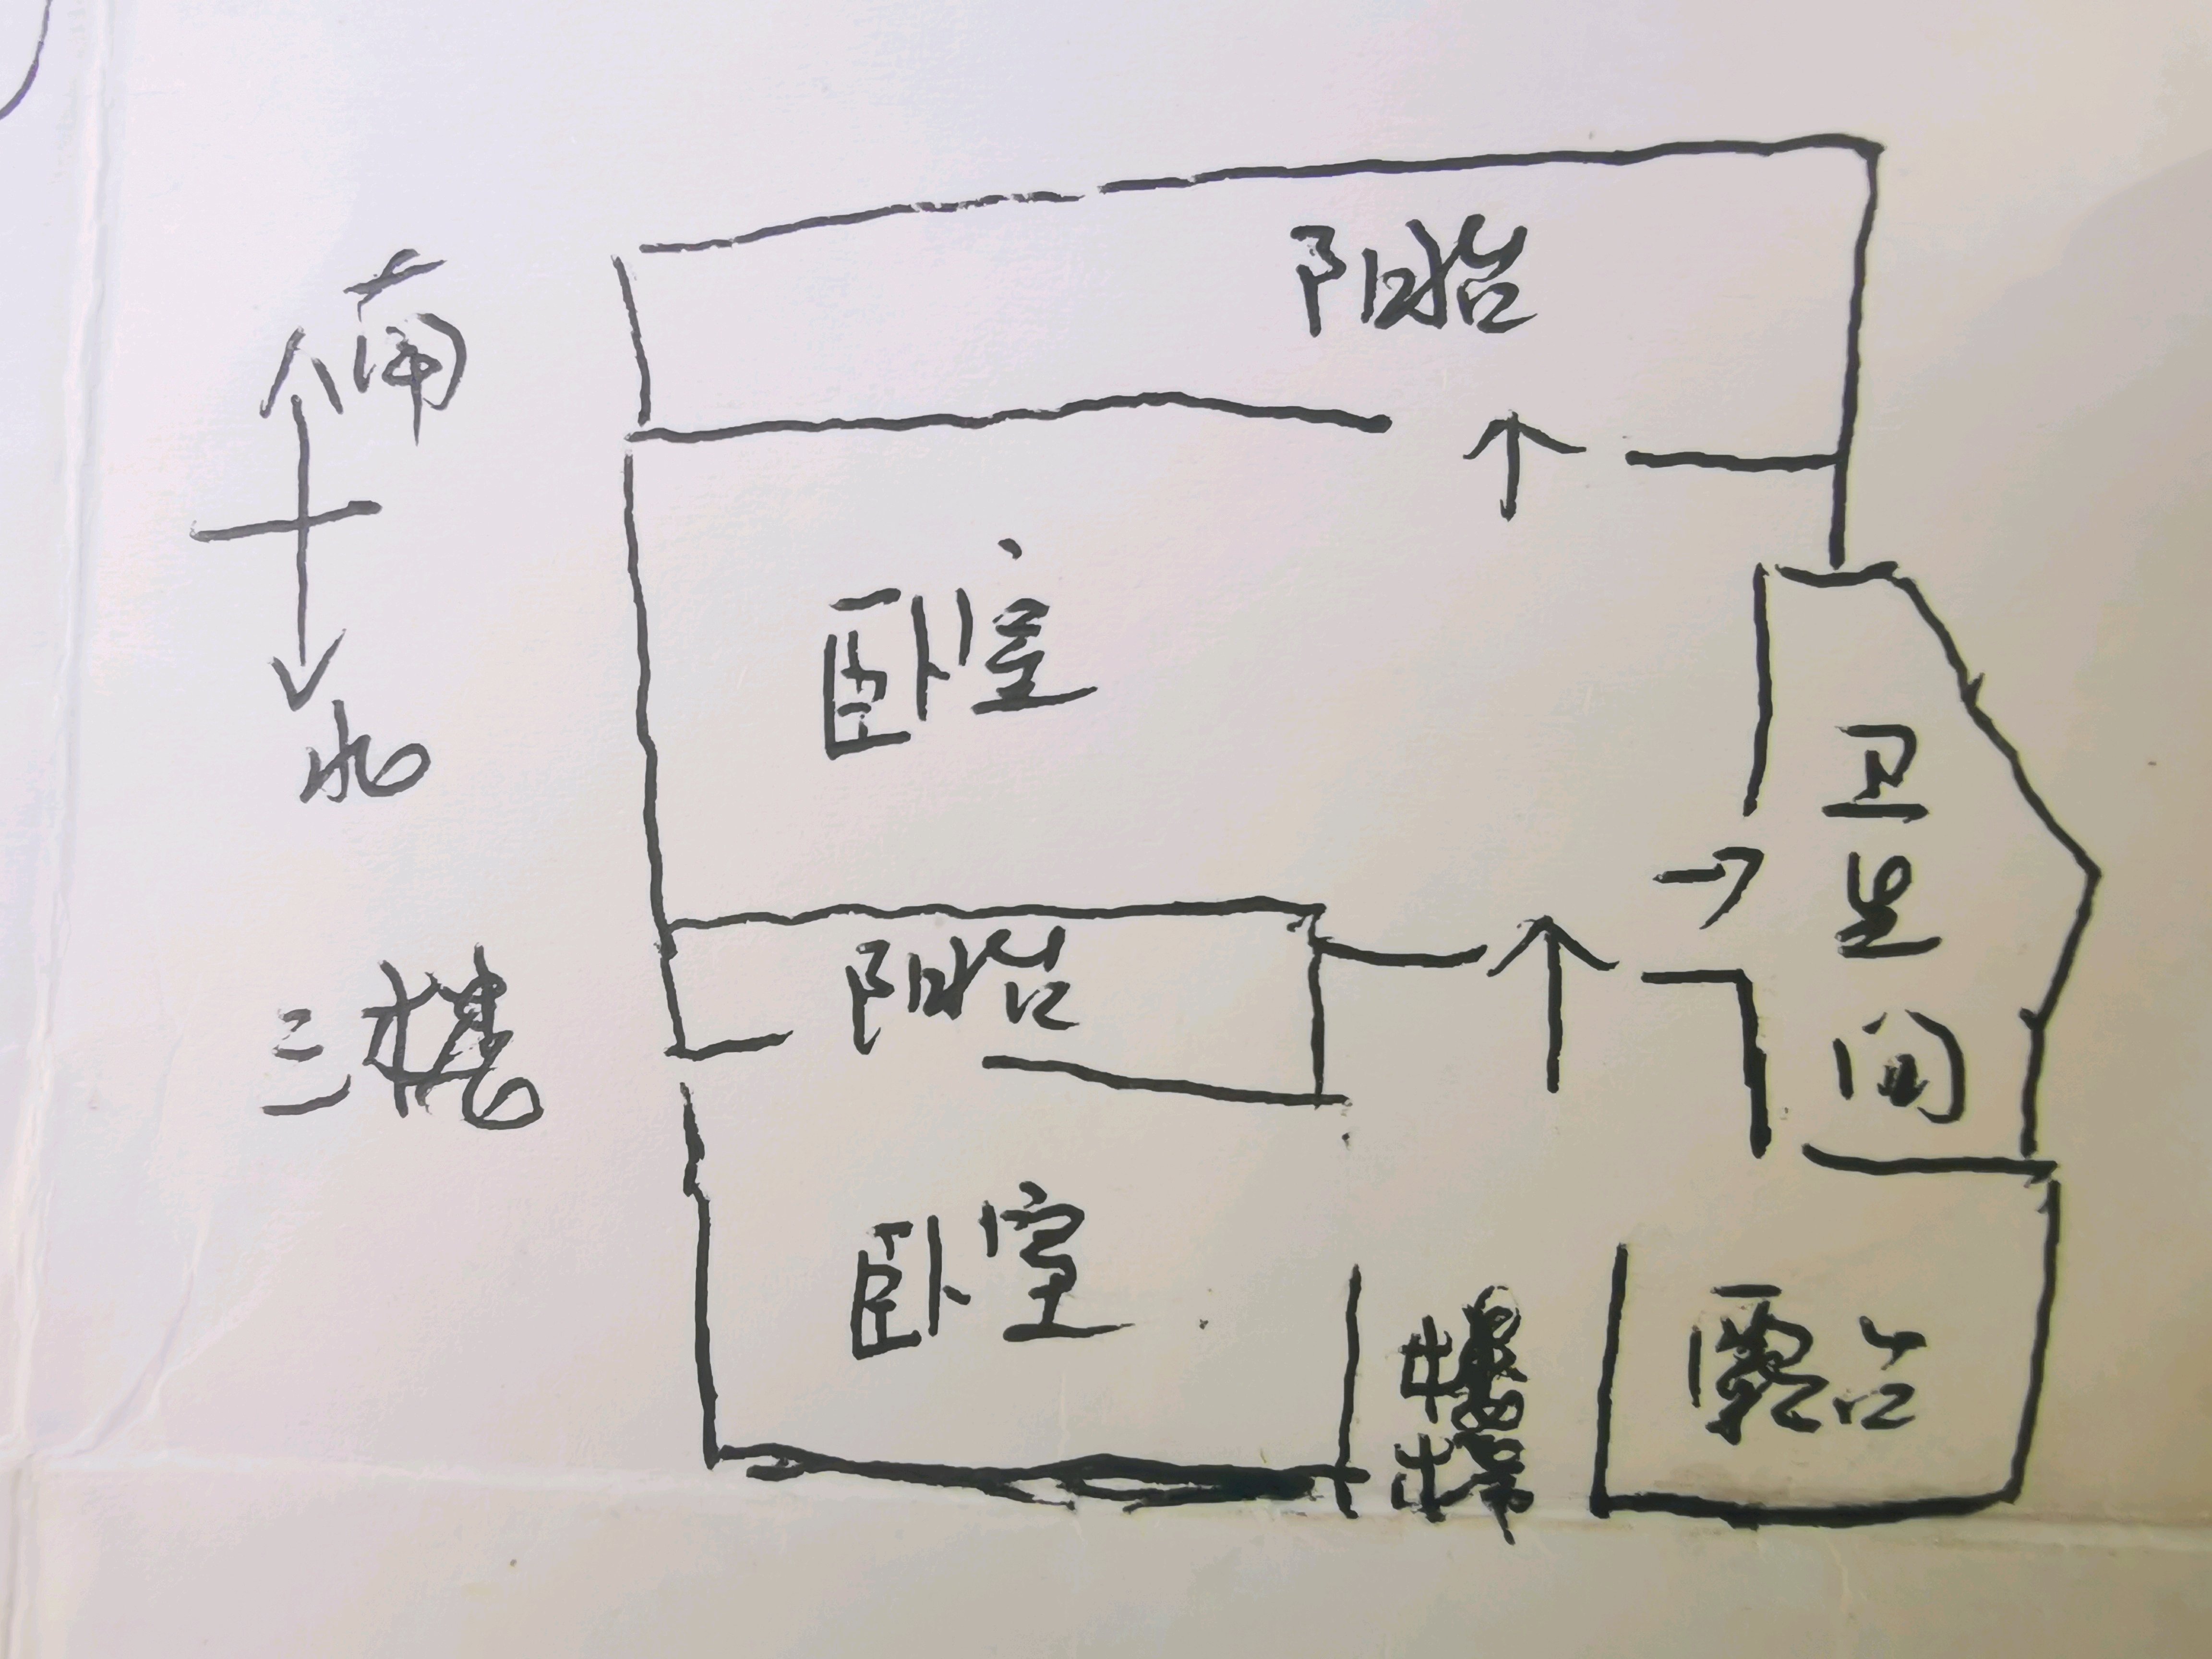 阳台
南
卧室
北
卫生间
阳台
三楼
卧室
楼梯
露台